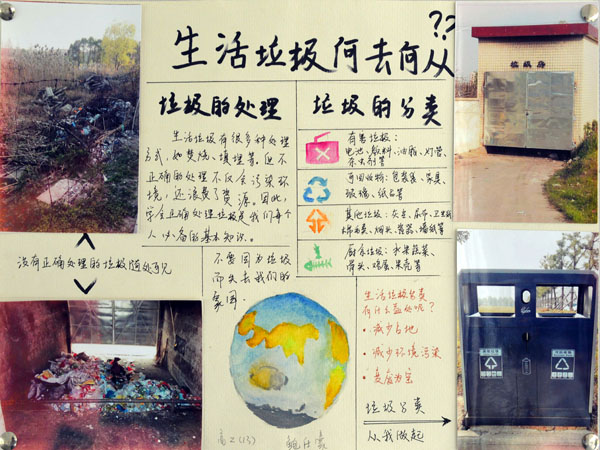 生活垃圾何去何从??
垃圾的处理
生活垃圾有很多种处理
方式,如焚烧、填埋等。但不
正确的处理不仅会污染环
境,还浪费了资源。因此,
学会正确处理垃圾是我们每个
人必备的基本知识。
没有正确处理的垃圾随处可见
不要因为垃圾
而失去我们的
家园.
垃圾的分类
有害垃圾:
电池、颜料、油漆、灯管、
杀虫剂等
可回收物:包装袋、家具、
玻璃、纸巾等
其他垃圾:灰尘、尿布、卫生纸
烟头、容器、墙纸等
厨余垃圾:水果蔬菜、
骨头、鸡蛋、果壳等
生活垃圾分类
有什么益处呢?
·减少占地
·减少环境污染
·变废为宝
垃圾分类
从我做起
高二(13)
垃圾房